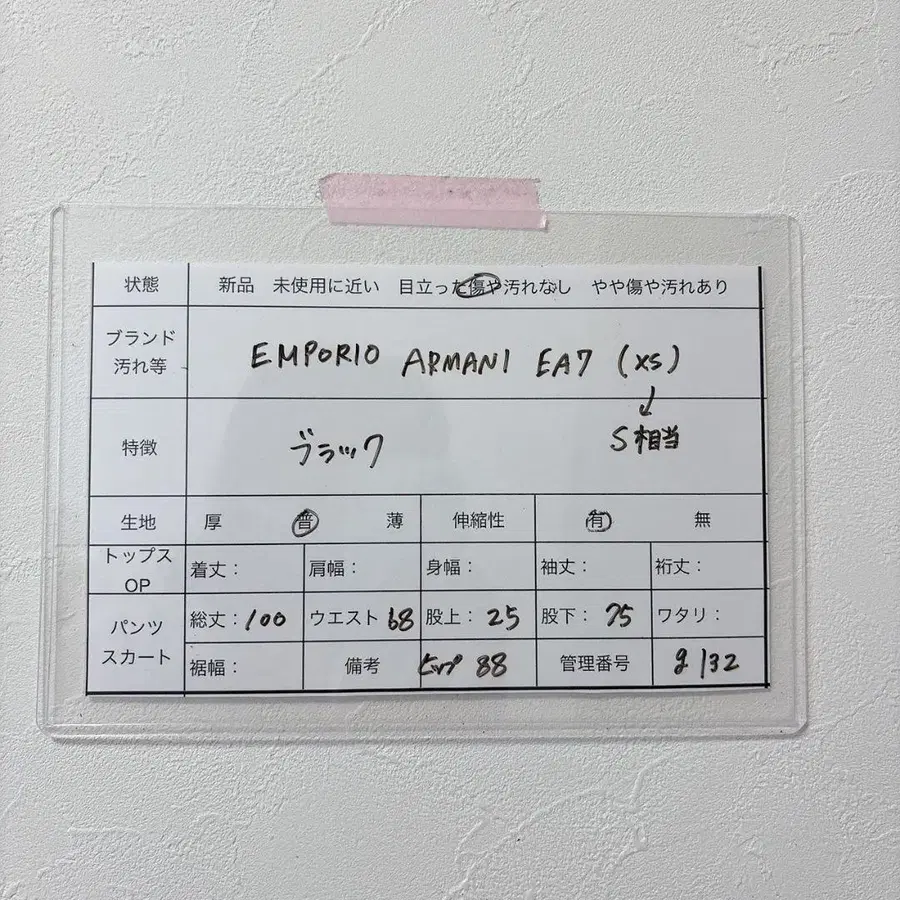 状態 新品 未使用に近い 目立った傷や汚れなし やや傷や汚れあり
ブランド
汚れ等
EMPORIO ARMANI EA7 (XS)
↓
特徴 ブラック S相当
生地 厚 普 薄 伸縮性 有 無
トップス
OP
着丈： 肩幅： 身幅： 袖丈： 裄丈：
パンツ
スカート
総丈：100 ウエスト 68 股上：25 股下：75 ワタリ：
裾幅： 備考 ヒップ 88 管理番号 g132